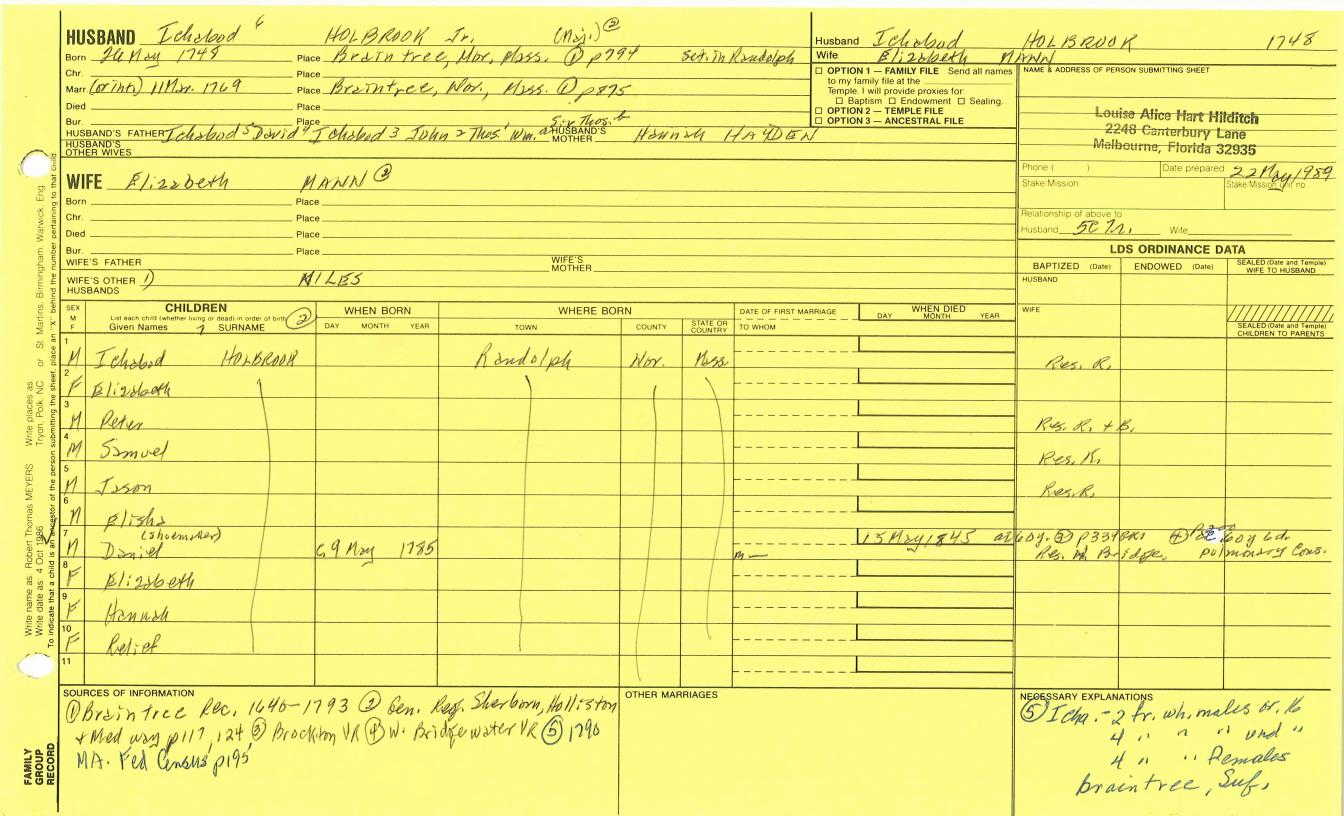 HUSBAND Ichabod 6 HOLBROOK Jr. (Maj.) ②
Born 26 May 1748 Place Braintree, Nor, Mass. ① p794 set. in Randolph
Chr. Place
Marr. (or int.) 11 Mar. 1769 Place Braintree, Nor., Mass. ① p875
Died Place
Bur. Place Sir Thos. b
HUSBAND'S FATHER Ichabod 5 David 4 Ichabod 3 John 2 Thos. 1 Wm. a HUSBAND'S MOTHER Hannah HAYDEN
HUSBAND'S OTHER WIVES
Husband Ichabod HOLBROOK 1748
Wife Elizabeth MANN
☐ OPTION 1 — FAMILY FILE Send all names
to my family file at the
Temple. I will provide proxies for
☐ Baptism ☐ Endowment ☐ Sealing.
☐ OPTION 2 — TEMPLE FILE
☐ OPTION 3 — ANCESTRAL FILE
NAME & ADDRESS OF PERSON SUBMITTING SHEET
Louise Alice Hart Hilditch
2248 Canterbury Lane
Melbourne, Florida 32935
Phone ( ) Date prepared 22 May 1989
Stake Mission Stake Mission unit no.
Relationship of above to
Husband 5C 7r. Wife
WIFE Elizabeth MANN ②
Born Place
Chr. Place
Died Place
Bur. Place
WIFE'S FATHER WIFE'S MOTHER
WIFE'S OTHER HUSBANDS 1) NILES
LDS ORDINANCE DATA
BAPTIZED (Date) ENDOWED (Date) SEALED (Date and Temple) WIFE TO HUSBAND
HUSBAND
WIFE
SEALED (Date and Temple) CHILDREN TO PARENTS
SEX M F CHILDREN WHEN BORN WHERE BORN DATE OF FIRST MARRIAGE WHEN DIED
List each child (whether living or dead) in order of birth ②
Given Names 7 SURNAME DAY MONTH YEAR TOWN COUNTY STATE OR COUNTRY TO WHOM DAY MONTH YEAR
1 M Ichabod HOLBROOK Randolph Nor. Mass Res. R.
2 F Elizabeth
3 M Peter Res. R. + B.
4 M Samuel Res. R.
5 M Jason Res. R.
6 M Elisha
7 M (shoemaker) Daniel c. 9 May 1785 m— 15 May 1845 ae 60y. ③ p334 ④ 60y
Res. W. Bridge. pulmonary Cons.
8 F Elizabeth
9 F Hannah
10 F Relief
11
SOURCES OF INFORMATION
① Braintree Rec. 1640-1793 ② Gen. Reg. Sherborn, Holliston
+ Medway p117, 124 ③ Brockton VR ④ W. Bridgewater VR ⑤ 1790
MA. Fed Census p195
OTHER MARRIAGES
NECESSARY EXPLANATIONS
⑤ Icha. - 2 fr. wh. males ov. 16
4 " " " und "
4 " " Females
Braintree, Suf.
Write name as Robert Thomas MEYERS Write places as Tryon, Polk, NC or St. Martins, Birmingham, Warwick, Eng.
Write date as 4 Oct 1896
To indicate that a child is an ancestor of the person submitting the sheet, place an "X" behind the number pertaining to that child
FAMILY
GROUP
RECORD